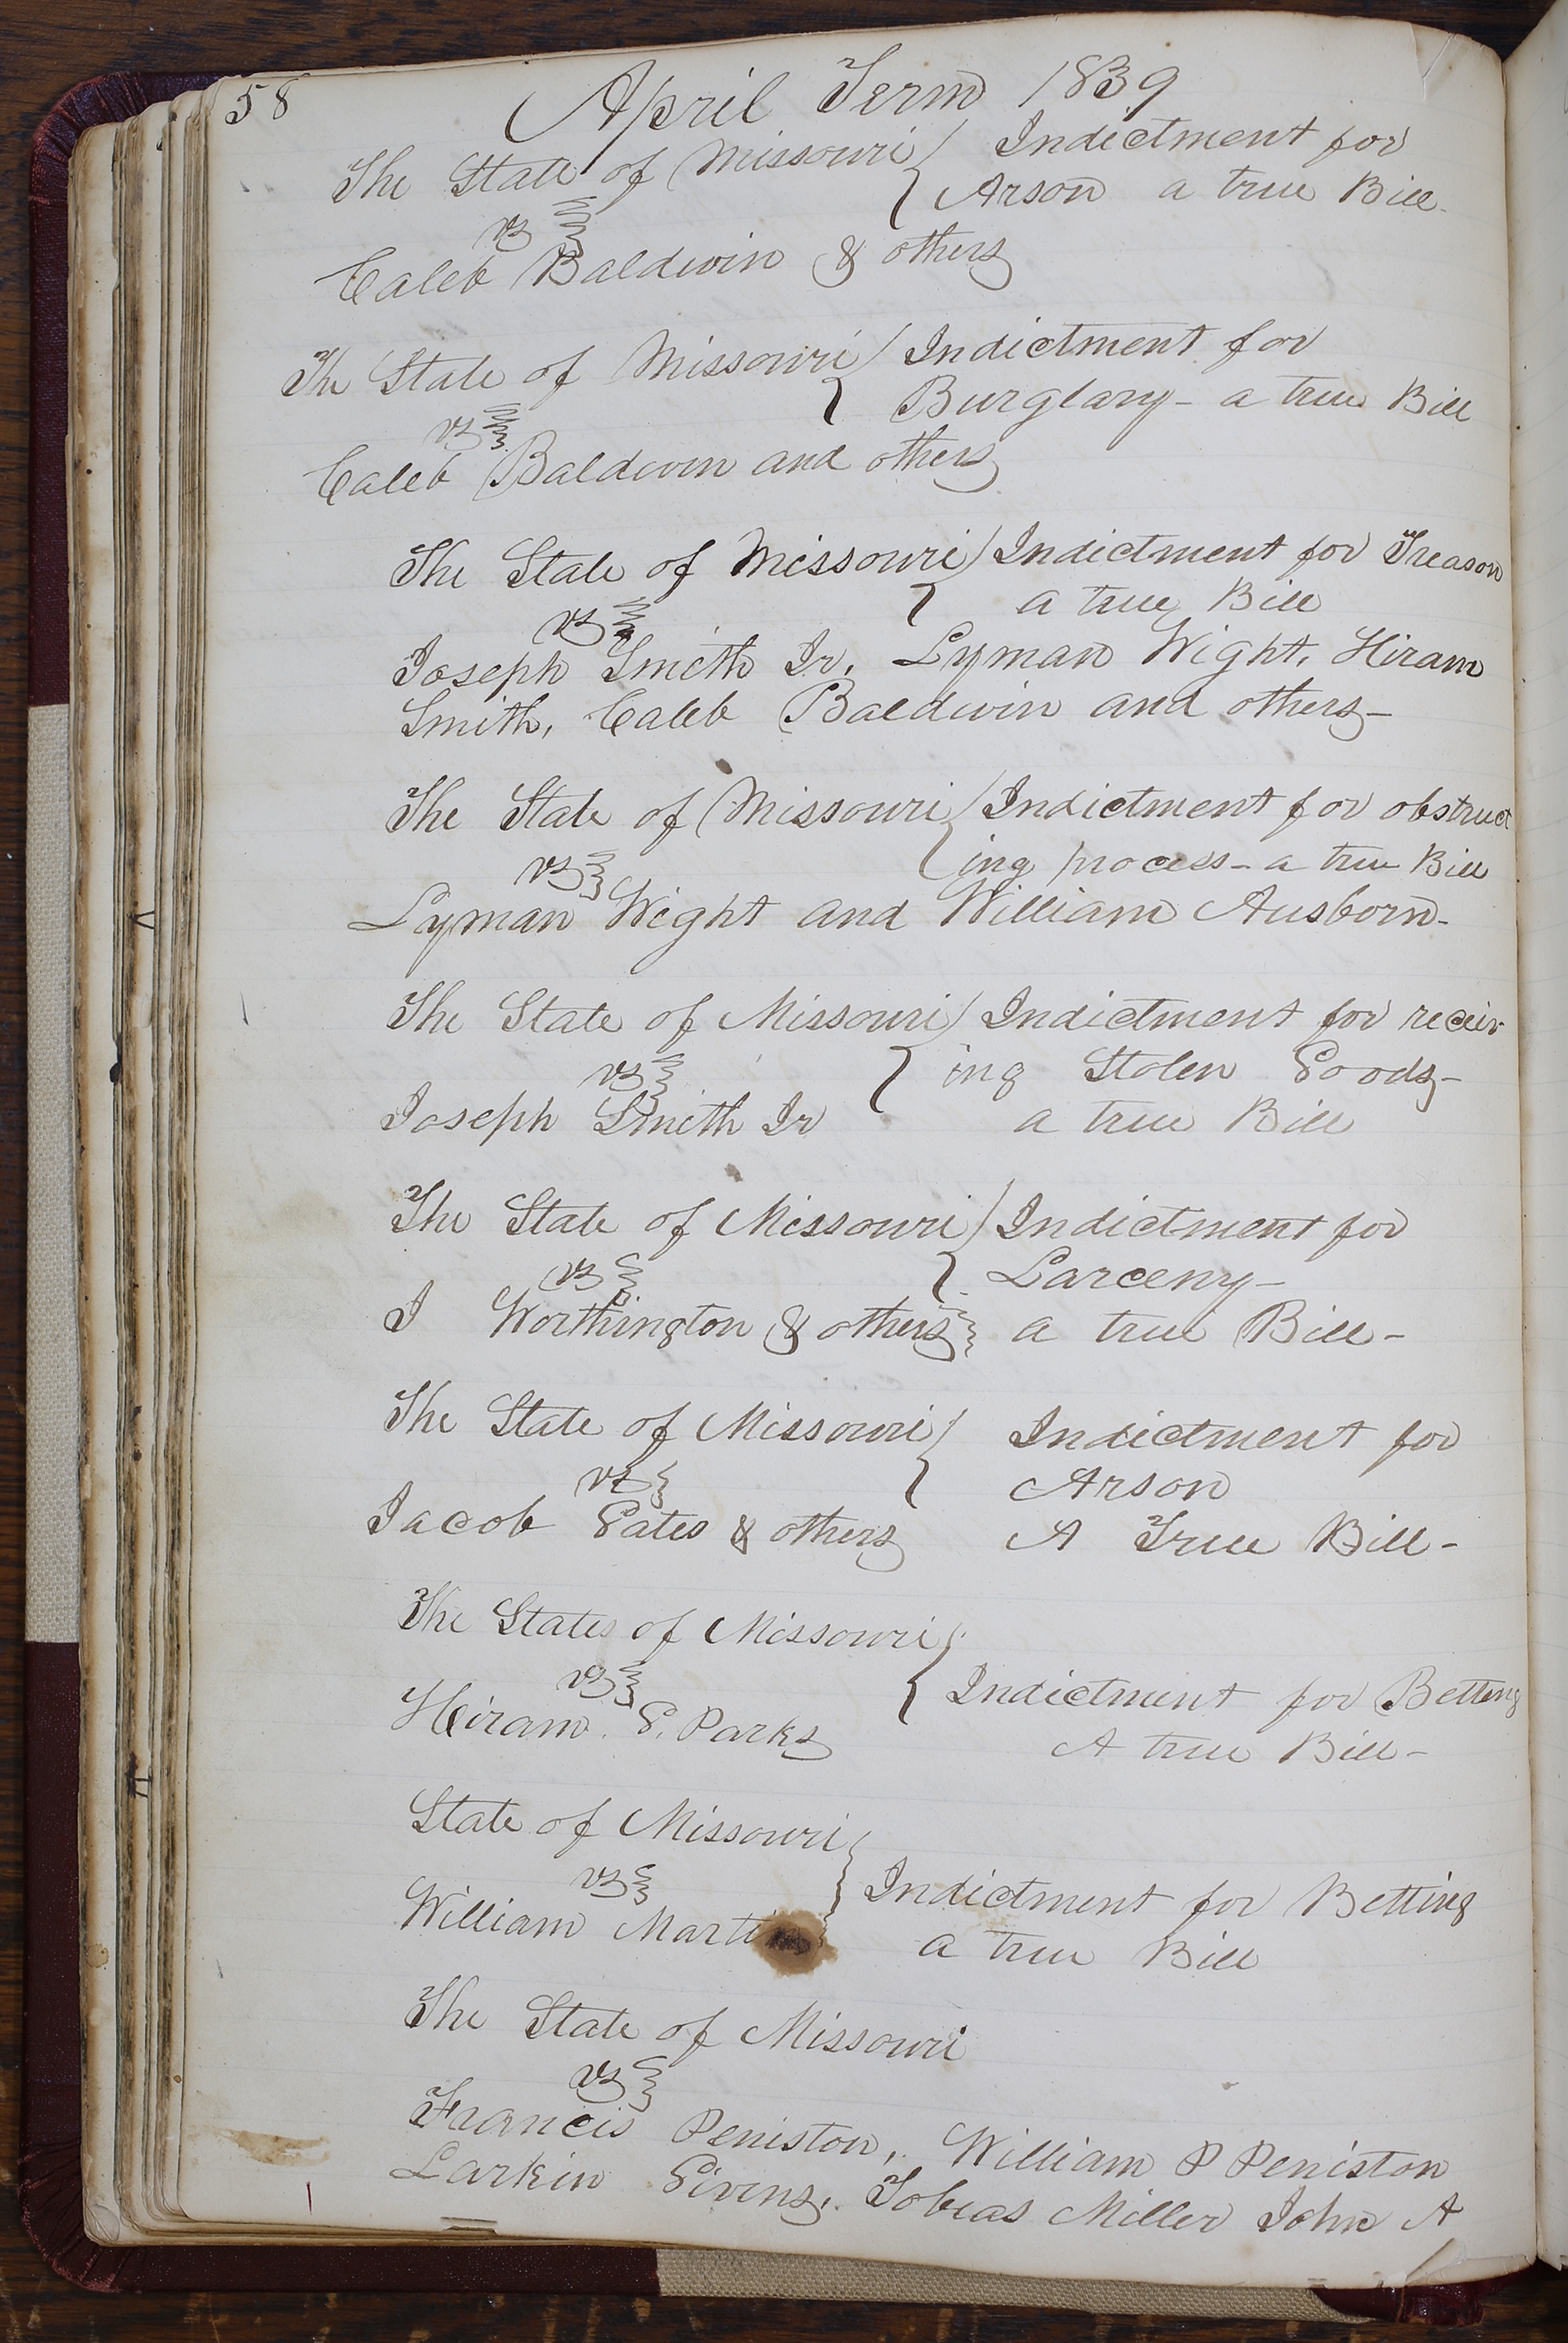 58
April Term 1839
The State of Missouri Indictment for
Arson a true Bill-
vs
Caleb Baldwin & others
The State of Missouri Indictment for
Burglary- a true Bill
vs
Caleb Baldwin and others
The State of Missouri Indictment for Treason
a true Bill
vs
Joseph Smith Jr. Lyman Wight. Hiram
Smith, Caleb Baldwin and others-
The State of Missouri Indictment for obstruct
ing process- a true Bill
vs
Lyman Wight and William Ausborn-
The State of Missouri Indictment for receiv
ing Stolen Goods-
vs
Joseph Smith Jr a true Bill
The State of Missouri Indictment for
vs Larceny-
J Worthington & others a true Bill-
The State of Missouri Indictment for
vs Arson
Jacob Gates & others A True Bill-
The States of Missouri
vs Indictment for Betting
Hiram. G. Parks A true Bill-
State of Missouri
vs Indictment for Betting
William Martin a true Bill
The State of Missouri
vs
Francis Peniston, William P Peniston
Larkin Givens, Tobias Miller John A